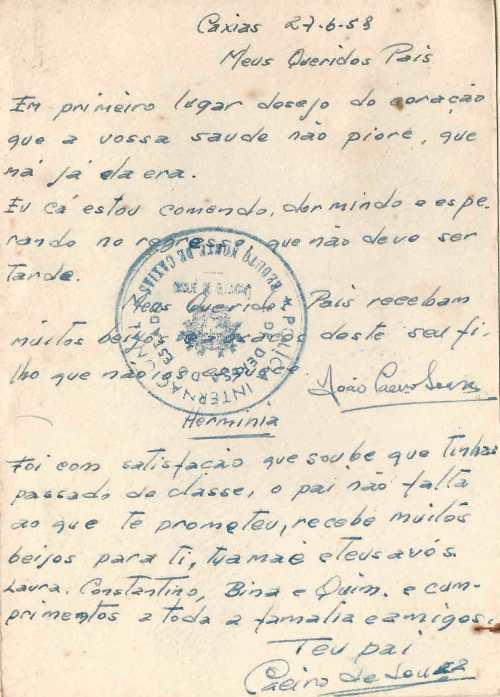 Caxias 27-6-53
Meus Queridos Pais
Em primeiro lugar desejo do coração
que a vossa saude não piore, que
má já ela era.
Eu cá estou comendo, dormindo e espe-
rando no regresso, que não deve ser
tarde.
Meus Queridos Pais recebam
muitos beijos e abraços deste seu fi-
lho que não vos esquece
João Caeiro Sousa
Herminia
Foi com satisfação que soube que tinhas
passado de classe, o pai não falta
ao que te prometeu, recebe muitos
beijos para ti, tua mãe e teus avós.
Laura. Constantino, Bina e Quim. e cum-
primentos a toda a familia e amigos.
Teu pai
Caeiro de Souza
POLICIA INTERNACIONAL
E DE DEFESA DO ESTADO
REDUTO NORTE DE CAXIAS